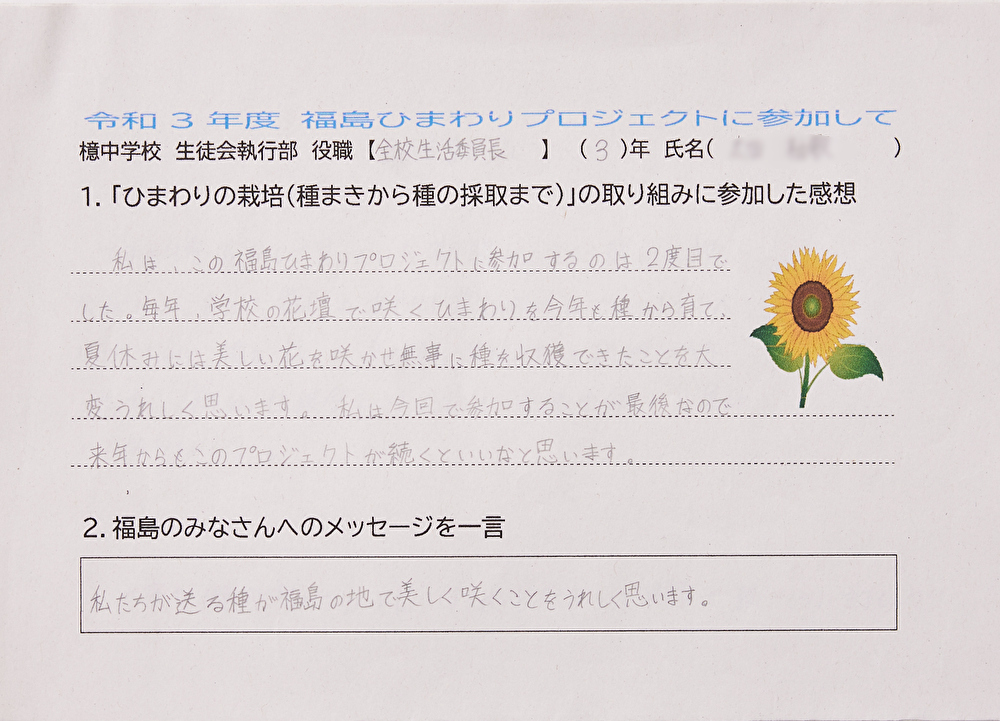 令和3年度 福島ひまわりプロジェクトに参加して
檍中学校 生徒会執行部 役職【全校生活委員長】 (3)年 氏名( )
1.「ひまわりの栽培(種まきから種の採取まで)」の取り組みに参加した感想
私は、この福島ひまわりプロジェクトに参加するのは2度目で
した。毎年、学校の花壇で咲くひまわりを今年も種から育て、
夏休みには美しい花を咲かせ無事に種を収獲できたことを大
変うれしく思います。私は今回で参加することが最後なので
来年からもこのプロジェクトが続くといいなと思います。
2.福島のみなさんへのメッセージを一言
私たちが送る種が福島の地で美しく咲くことをうれしく思います。